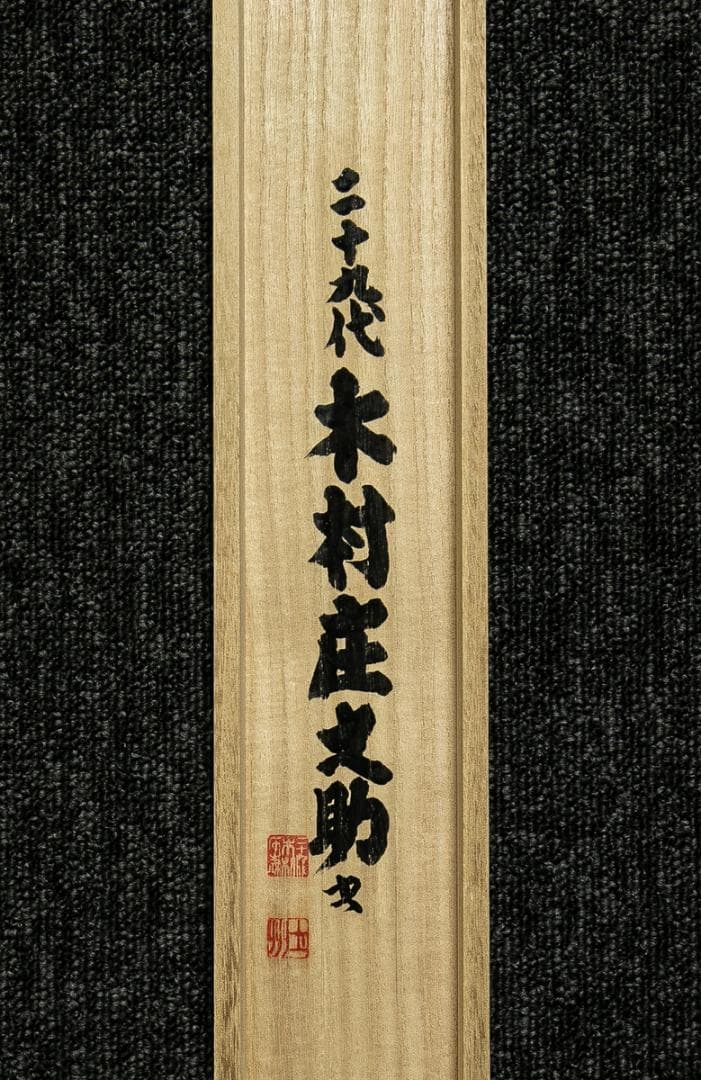 二十九代木村庄之助書